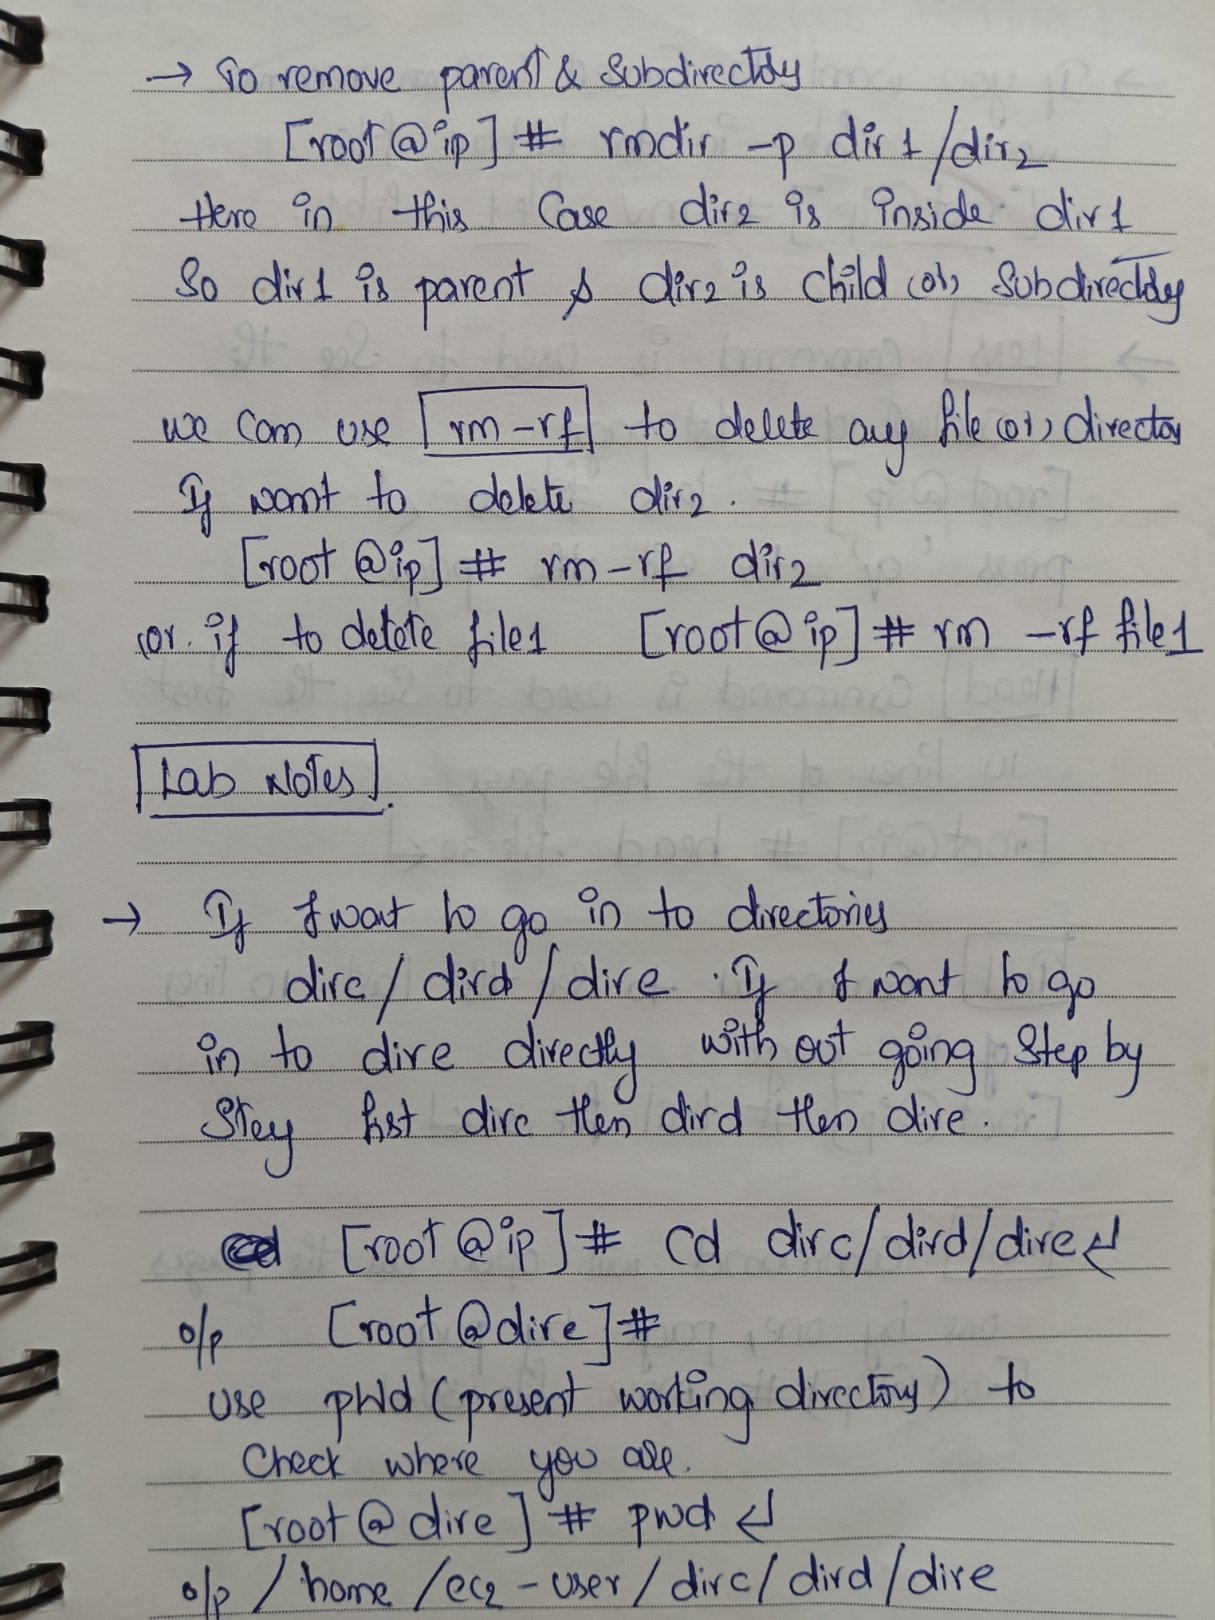 → To remove parent & Subdirectory
[root@ip] # rmdir -p dir1/dir2
Here in this Case dir2 is inside dir1
So dir1 is parent & dir2 is child (or) Subdirectory
we can use rm -rf to delete any file (or) director
If want to delete dir2.
[root@ip] # rm -rf dir2
(or. if to delete file1 [root@ip] # rm -rf file1
Lab Notes.
→ If I want to go in to directories
dirc/dird/dire. If I want to go
in to dire directly with out going Step by
Stey fist dirc then dird then dire.
[root@ip] # cd dirc/dird/dire ↵
o/p [root@dire] #
use pwd (present working directory) to
Check where you are.
[root@dire] # pwd ↵
o/p /home/ec2-user/dirc/dird/dire